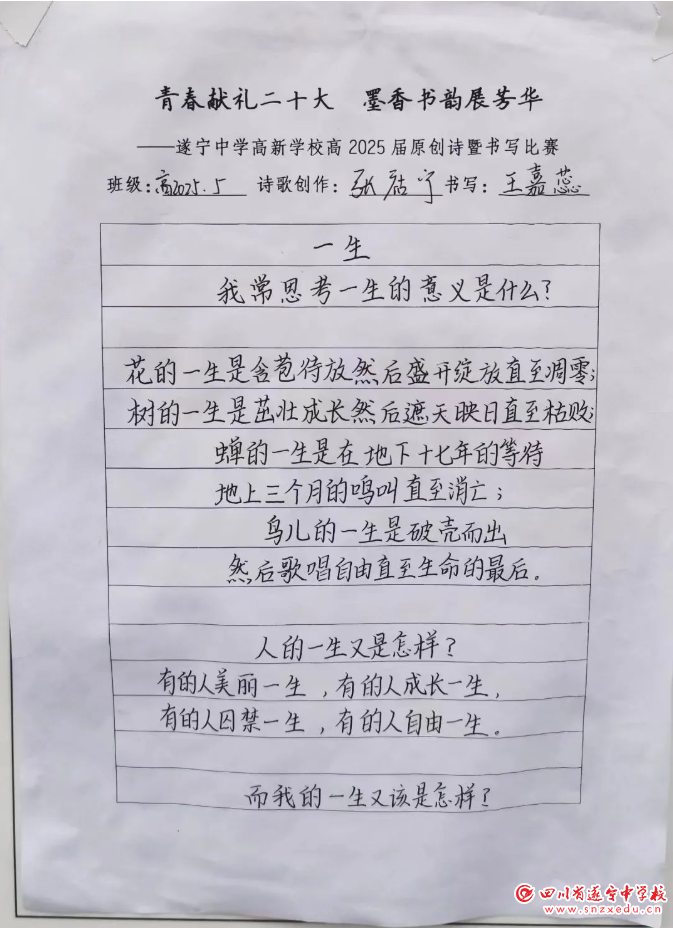 青春献礼二十大 墨香书韵展芳华
——遂宁中学高新学校高2025届原创诗暨书写比赛
班级:高2025.5 诗歌创作:张 书写:王嘉蕊
一生
我常思考一生的意义是什么?
花的一生是含苞待放然后盛开绽放直至凋零;
树的一生是茁壮成长然后遮天映日直至枯败;
蝉的一生是在地下十七年的等待
地上三个月的鸣叫直至消亡;
鸟儿的一生是破壳而出
然后歌唱自由直至生命的最后。
人的一生又是怎样?
有的人美丽一生,有的人成长一生,
有的人囚禁一生,有的人自由一生。
而我的一生又该是怎样?
四川省遂宁中学校
www.snzxedu.cn